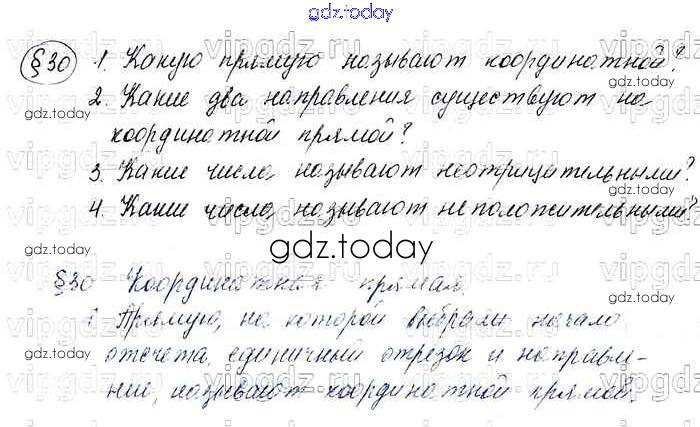 gdz.today
§30 1. Какую прямую называют координатной?
2. Какие два направления существуют на
координатной прямой?
3. Какие числа называют неотрицательными?
4. Какие числа называют неположительными?
gdz.today
§30 Координатная прямая.
1. Прямую, на которой выбрали начало
отсчета, единичный отрезок и направле-
ние, называют координатной прямой.